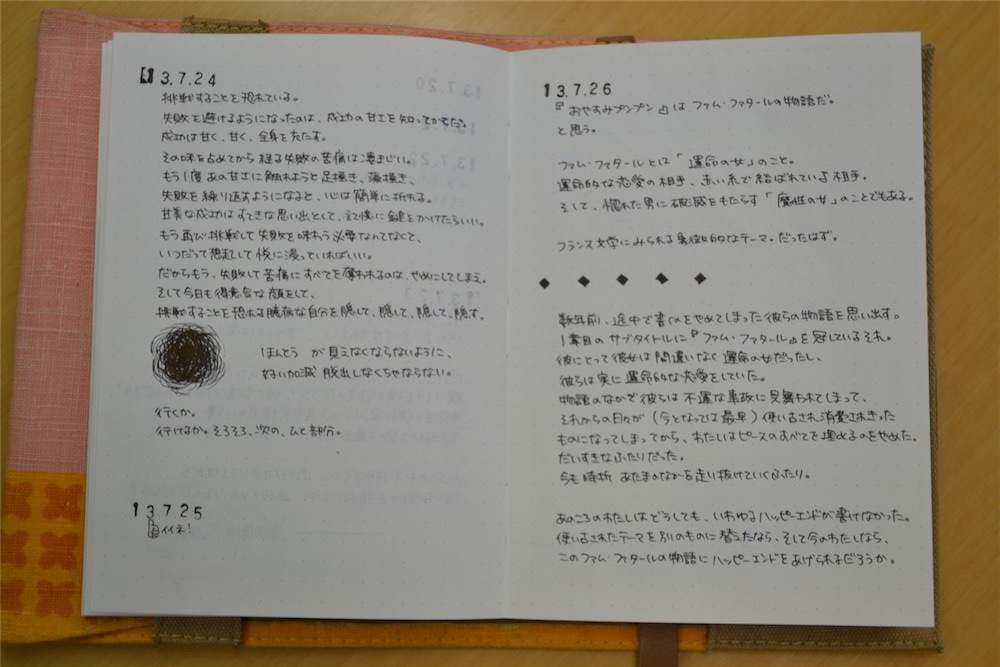 13.7.24
挑戦することを恐れている。
失敗を避けるようになったのは、成功の甘さを知ってからだ。
成功は甘く、甘く、全身を充たす。
その味を占めてから経る失敗の苦痛は凄まじい。
もう1度あの甘さに触れようと足掻き、藻掻き、
失敗を繰り返すようになると、心は簡単に折れる。
甘美な成功はすてきな思い出として、記憶に鍵をかけたらいい。
もう再び挑戦して失敗を味わう必要なんてなくと、
いつだって想起して悦に浸っていればいい。
だからもう、失敗して苦痛にすべてを奪われるのは、やめにしてしまえ。
そして今日も得意気な顔をして、
挑戦することを恐れる臆病な自分を隠して、隠して、隠して、隠す。
ほんとう が見えなくならないように、
好い加減 脱出しなくちゃならない。
行くか。
行けなか。そろそろ、次の、ひと部分。
13725
イイネ!
13.7.26
『おやすみプンプン』は ファム・ファタールの物語だ。
と思う。
ファム・ファタールとは「運命の女」のこと。
運命的な恋愛の相手、赤い糸で結ばれている相手。
そして、惚れた男に破滅をもたらす「魔性の女」のことでもある。
フランス文学にみられる象徴的なテーマ。だったはず。
◆ ◆ ◆ ◆ ◆
数年前、途中で書くのをやめてしまった彼らの物語を思い出す。
1章目のサブタイトルに『ファム・ファタール』を冠しているそれ。
彼にとって彼女は間違いなく運命の女だったし、
彼らは実に運命的な恋愛をしていた。
物語のなかで彼らは不運な事故に見舞われてしまって、
それからの日々が(今となっては最早)使い古され消費されきった
ものになってしまってから、わたしはピースのすべてを埋めるのをやめた。
だいすきなふたりだった。
今も時折 あたまのなかを走り抜けていくふたり。
あのころのわたしはどうしても、いわゆるハッピーエンドが書けなかった。
使い古されたテーマを別のものに替えたなら、そして今のわたしなら、
このファム・ファタールの物語にハッピーエンドをあげられるだろうか。